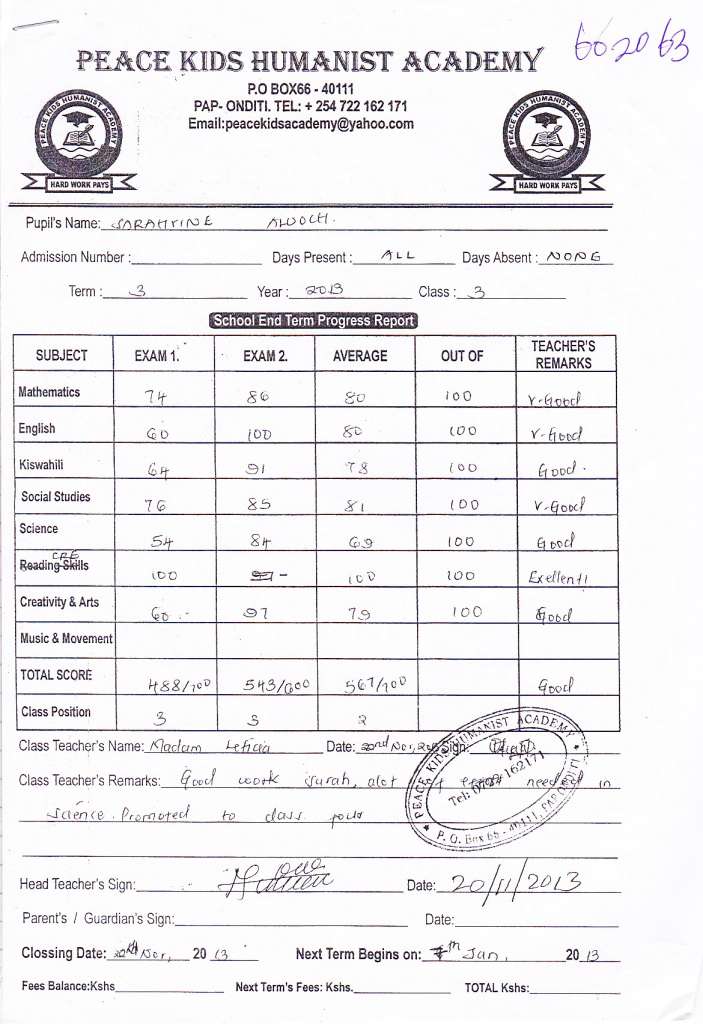 602063
PEACE KIDS HUMANIST ACADEMY
P.O BOX66 - 40111
PAP- ONDITI. TEL: + 254 722 162 171
Email:peacekidsacademy@yahoo.com
PEACE KIDS HUMANIST ACADEMY
HARD WORK PAYS
PEACE KIDS HUMANIST ACADEMY
HARD WORK PAYS
Pupil's Name: SARAHYINE AWOCH.
Admission Number : Days Present : ALL Days Absent : NONE
Term : 3 Year : 2013 Class : 3
School End Term Progress Report
SUBJECT EXAM 1. EXAM 2. AVERAGE OUT OF TEACHER'S REMARKS
Mathematics 74 86 80 100 V-Good
English 60 100 80 100 V-Good
Kiswahili 64 91 78 100 Good.
Social Studies 76 85 81 100 V-Good
Science 54 84 69 100 Good
CRE
Reading Skills 100 - 100 100 Exellent!
Creativity & Arts 60 97 79 100 Good
Music & Movement
TOTAL SCORE 488/700 543/600 567/700 Good
Class Position 3 3 2
Class Teacher's Name: Madam Leticia Date: 22nd Nov, Sign:
Class Teacher's Remarks: Good work Surah, alot needed in
Science. Promoted to class four
PEACE KIDS HUMANIST ACADEMY
Tel: 0722 162171
P. O. Box 66 - 40111, PAP ONDITI
Head Teacher's Sign: Date: 20/11/2013
Parent's / Guardian's Sign: Date:
Clossing Date: Nov, 20 13 Next Term Begins on: 7th Jan, 20 13
Fees Balance:Kshs Next Term's Fees: Kshs. TOTAL Kshs: